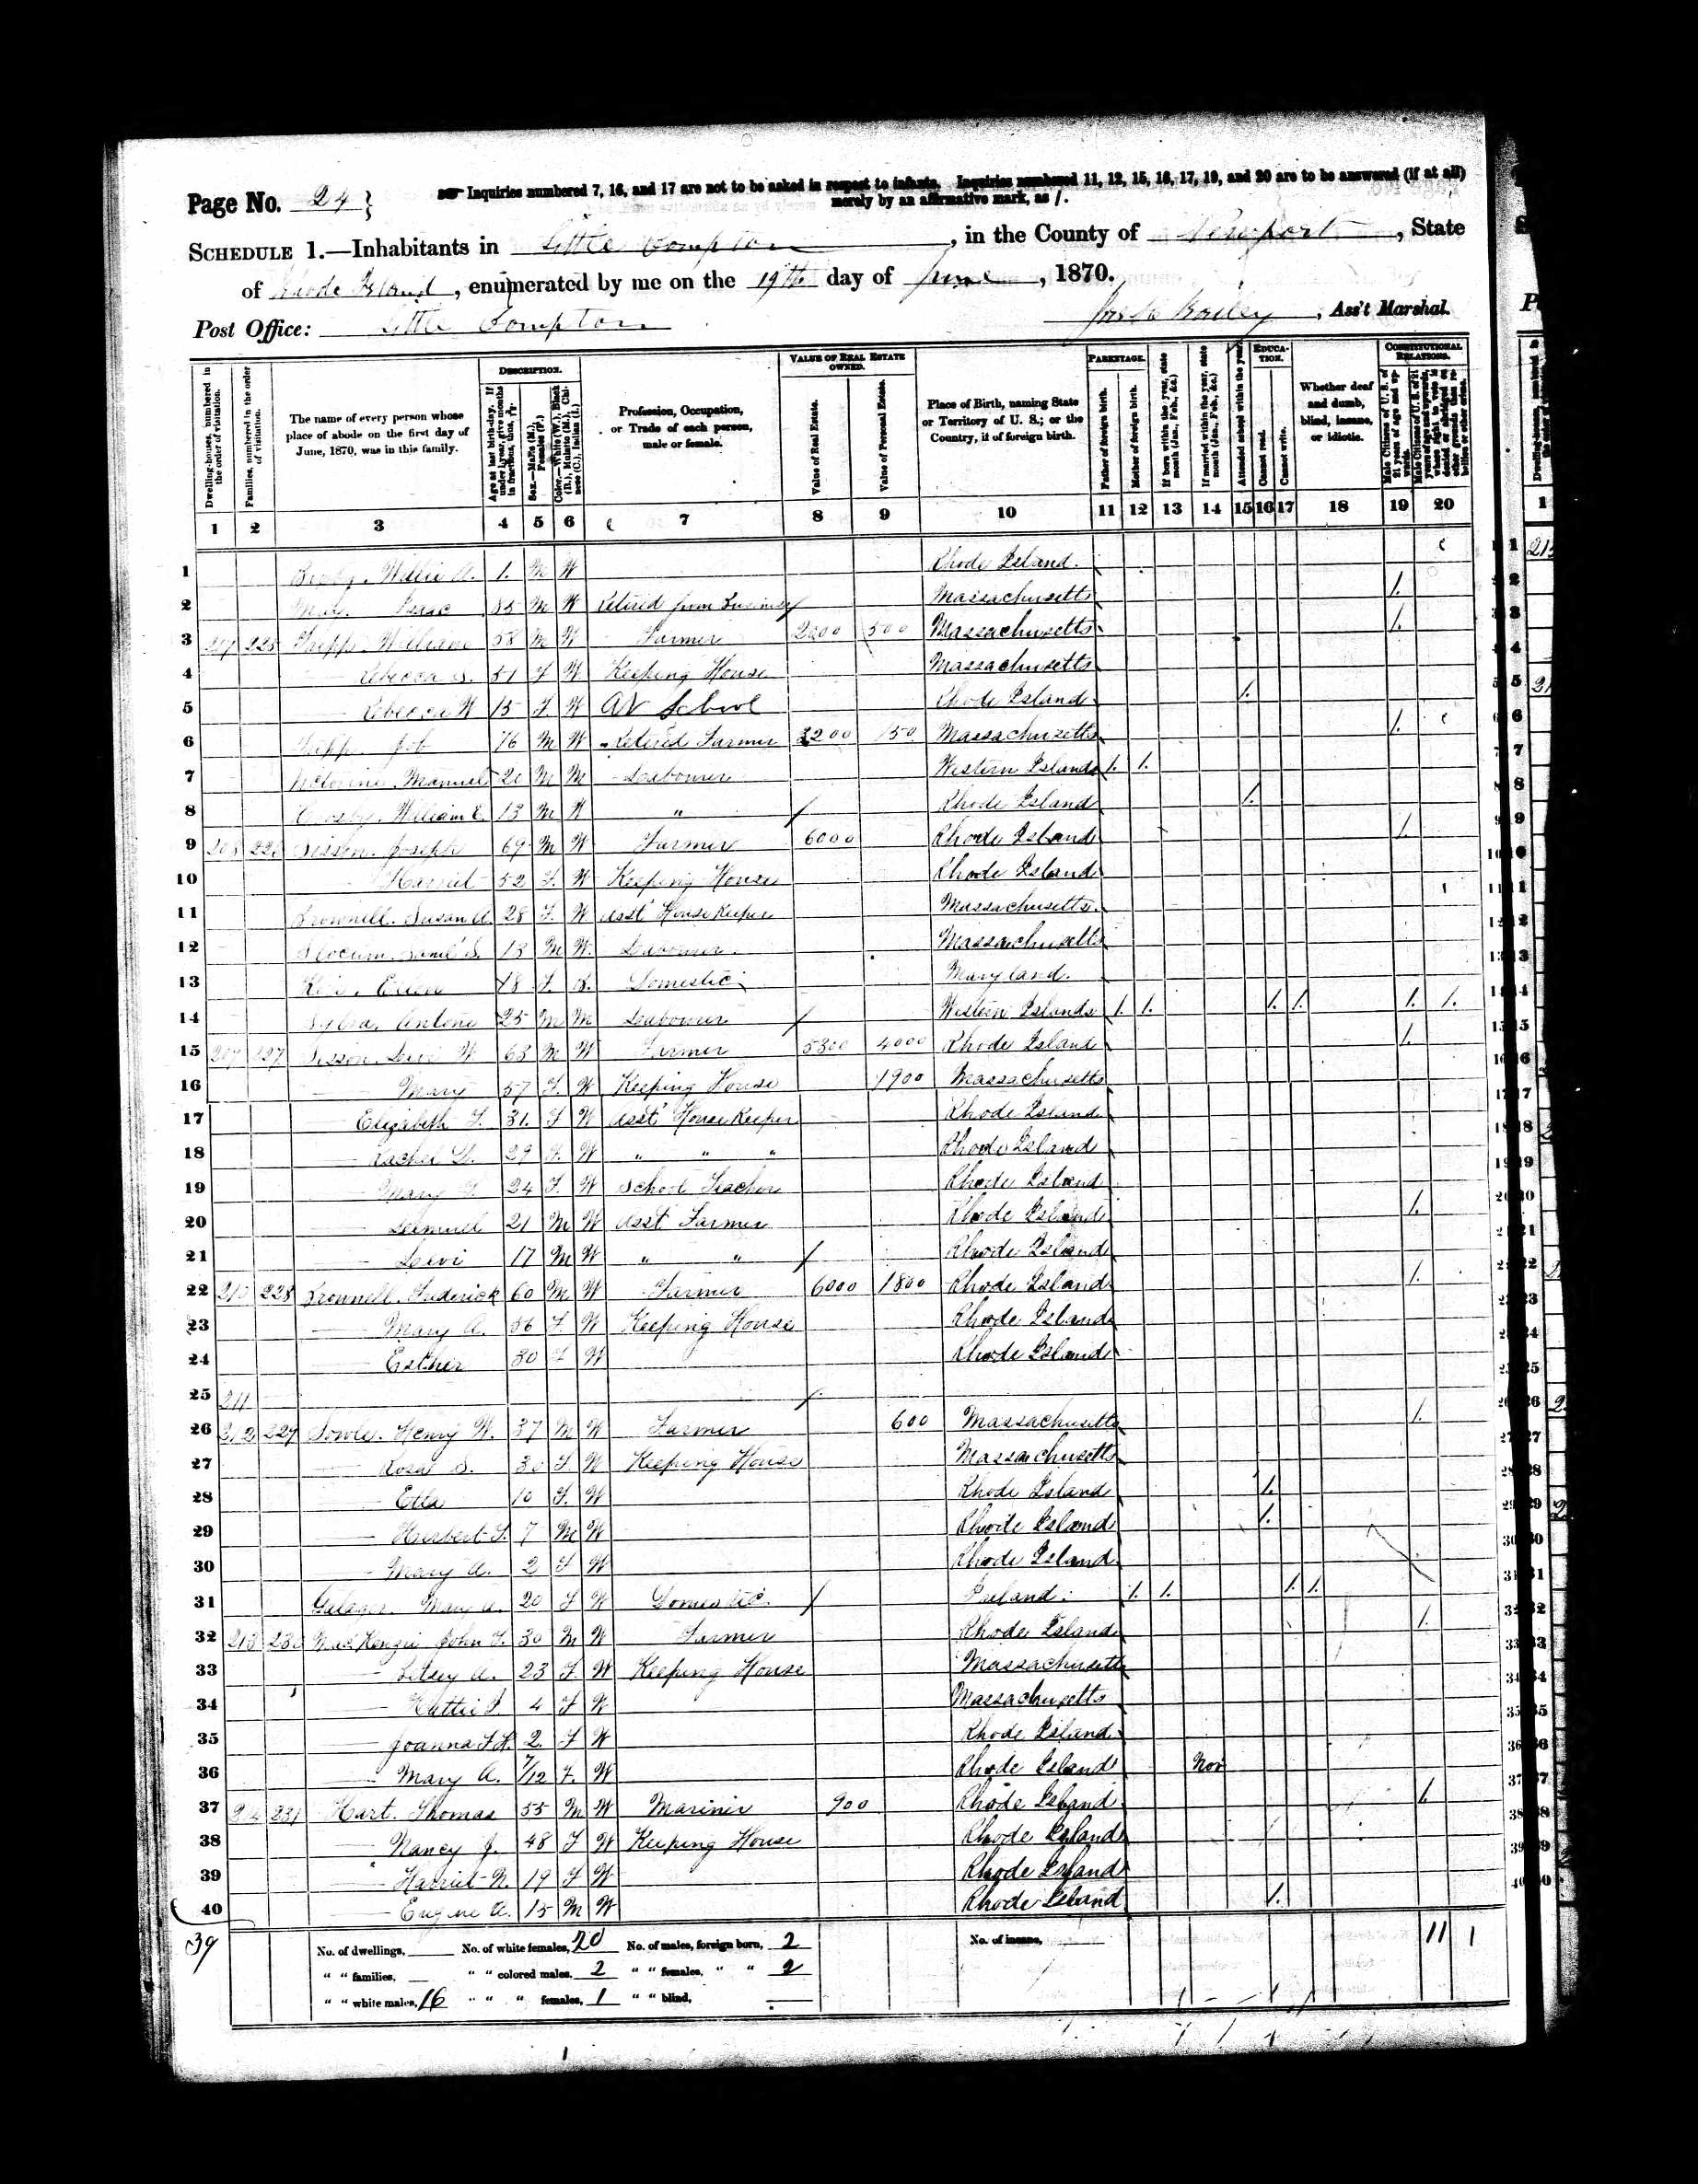 Page No. 24
Inquiries numbered 7, 16, and 17 are not to be asked in respect to infants. Inquiries numbered 11, 12, 15, 16, 17, 19, and 20 are to be answered (if at all)
merely by an affirmative mark, as /.
SCHEDULE 1.—Inhabitants in Little Compton, in the County of Newport, State
of Rhode Island, enumerated by me on the 19th day of June, 1870.
Post Office: Little Compton Bailey, Ass't Marshal.
Dwelling-houses, numbered in the order of visitation.
Families, numbered in the order of visitation.
The name of every person whose place of abode on the first day of June, 1870, was in this family.
DESCRIPTION.
Age at last birth-day. If under 1 year, give months in fractions, thus, 3/12.
Sex.—Males (M.), Females (F.)
Color.—White (W.), Black (B.), Mulatto (M.), Chinese (C.), Indian (I.)
Profession, Occupation, or Trade of each person, male or female.
VALUE OF REAL ESTATE OWNED.
Value of Real Estate.
Value of Personal Estate.
Place of Birth, naming State or Territory of U. S.; or the Country, if of foreign birth.
PARENTAGE.
Father of foreign birth.
Mother of foreign birth.
If born within the year, state month (Jan., Feb., &c.)
If married within the year, state month (Jan., Feb., &c.)
Attended school within the year.
EDUCATION.
Cannot read.
Cannot write.
Whether deaf and dumb, blind, insane, or idiotic.
CONSTITUTIONAL RELATIONS.
Male Citizens of U. S. of 21 years of age and upwards.
Male Citizens of U. S. of 21 years of age and upwards, whose right to vote is denied or abridged on other grounds than rebellion or other crime.
1 2 3 4 5 6 7 8 9 10 11 12 13 14 15 16 17 18 19 20
1 Willie A. 1. M W Rhode Island.
2 Isaac 85 M W Retired from Business Massachusetts 1.
3 225 Tripp, William 58 M W Farmer 2000 500 Massachusetts 1.
4 Rebecca S. 51 F W Keeping House Massachusetts
5 Rebecca W 15 F. W At School Rhode Island 1.
6 Tripp Job 76 M W Retired Farmer 3200 150 Massachusetts 1.
7 Manuel 20 M M Labourer Western Islands 1. 1.
8 Crosby, William E. 13 M W " Rhode Island 1.
9 208 Sisson, Joseph 69 M W Farmer 6000 Rhode Island 1.
10 Harriet 52 F. W Keeping House Rhode Island
11 Brownell, Susan A. 28 F. W Asst House Keeper Massachusetts.
12 Slocum, S. 13 M W. Labourer. Massachusetts
13 Ellen 18 F. B. Domestic Maryland.
14 Sylvia, Antone 25 M M Labourer Western Islands 1. 1. 1. 1. 1. 1.
15 209 227 Sisson, Levi W 63 M W Farmer 5300 4000 Rhode Island 1.
16 Mary 57 F. W Keeping House 1900 Massachusetts
17 Elizabeth F. 31. F W Asst House Keeper Rhode Island
18 Rachel 29 F. W " " " Rhode Island
19 Mary 24 F. W School Teacher Rhode Island
20 Lemuel 21 M W Asst Farmer Rhode Island 1.
21 Levi 17 M W " " Rhode Island
22 210 228 Brownell, Frederick 60 M W Farmer 6000 1800 Rhode Island 1.
23 Mary A. 56 F. W Keeping House Rhode Island
24 Esther 30 F W Rhode Island
25 211
26 212 229 Sowle, Henry W. 37 M W Farmer 600 Massachusetts 1.
27 Rosa S. 30 F W Keeping House Massachusetts
28 Etta 10 F. W Rhode Island 1.
29 Herbert S. 7 M W Rhode Island 1.
30 Mary A. 2 F W Rhode Island
31 Mary A. 20 F W Domestic. Ireland. 1. 1. 1. 1.
32 213 230 MacKenzie John F. 30 M W Farmer Rhode Island 1.
33 Betsey A. 23 F. W Keeping House Massachusetts
34 Hattie 4 F W Massachusetts
35 Joanna F. H. 2. F W Rhode Island
36 Mary A. 7/12 F. W Rhode Island Nov
37 214 231 Hart, Thomas 55 M W Mariner 900 Rhode Island 1.
38 Nancy J. 48 F W Keeping House Rhode Island
39 Harriet N. 19 F W Rhode Island
40 Eugene A. 15 M W Rhode Island 1.
39
No. of dwellings, No. of white females, 20 No. of males, foreign born, 2 No. of insane, 11 1
" " families, " " colored males, 2 " " females, " " 2
" " white males, 16 " " " females, 1 " " blind,